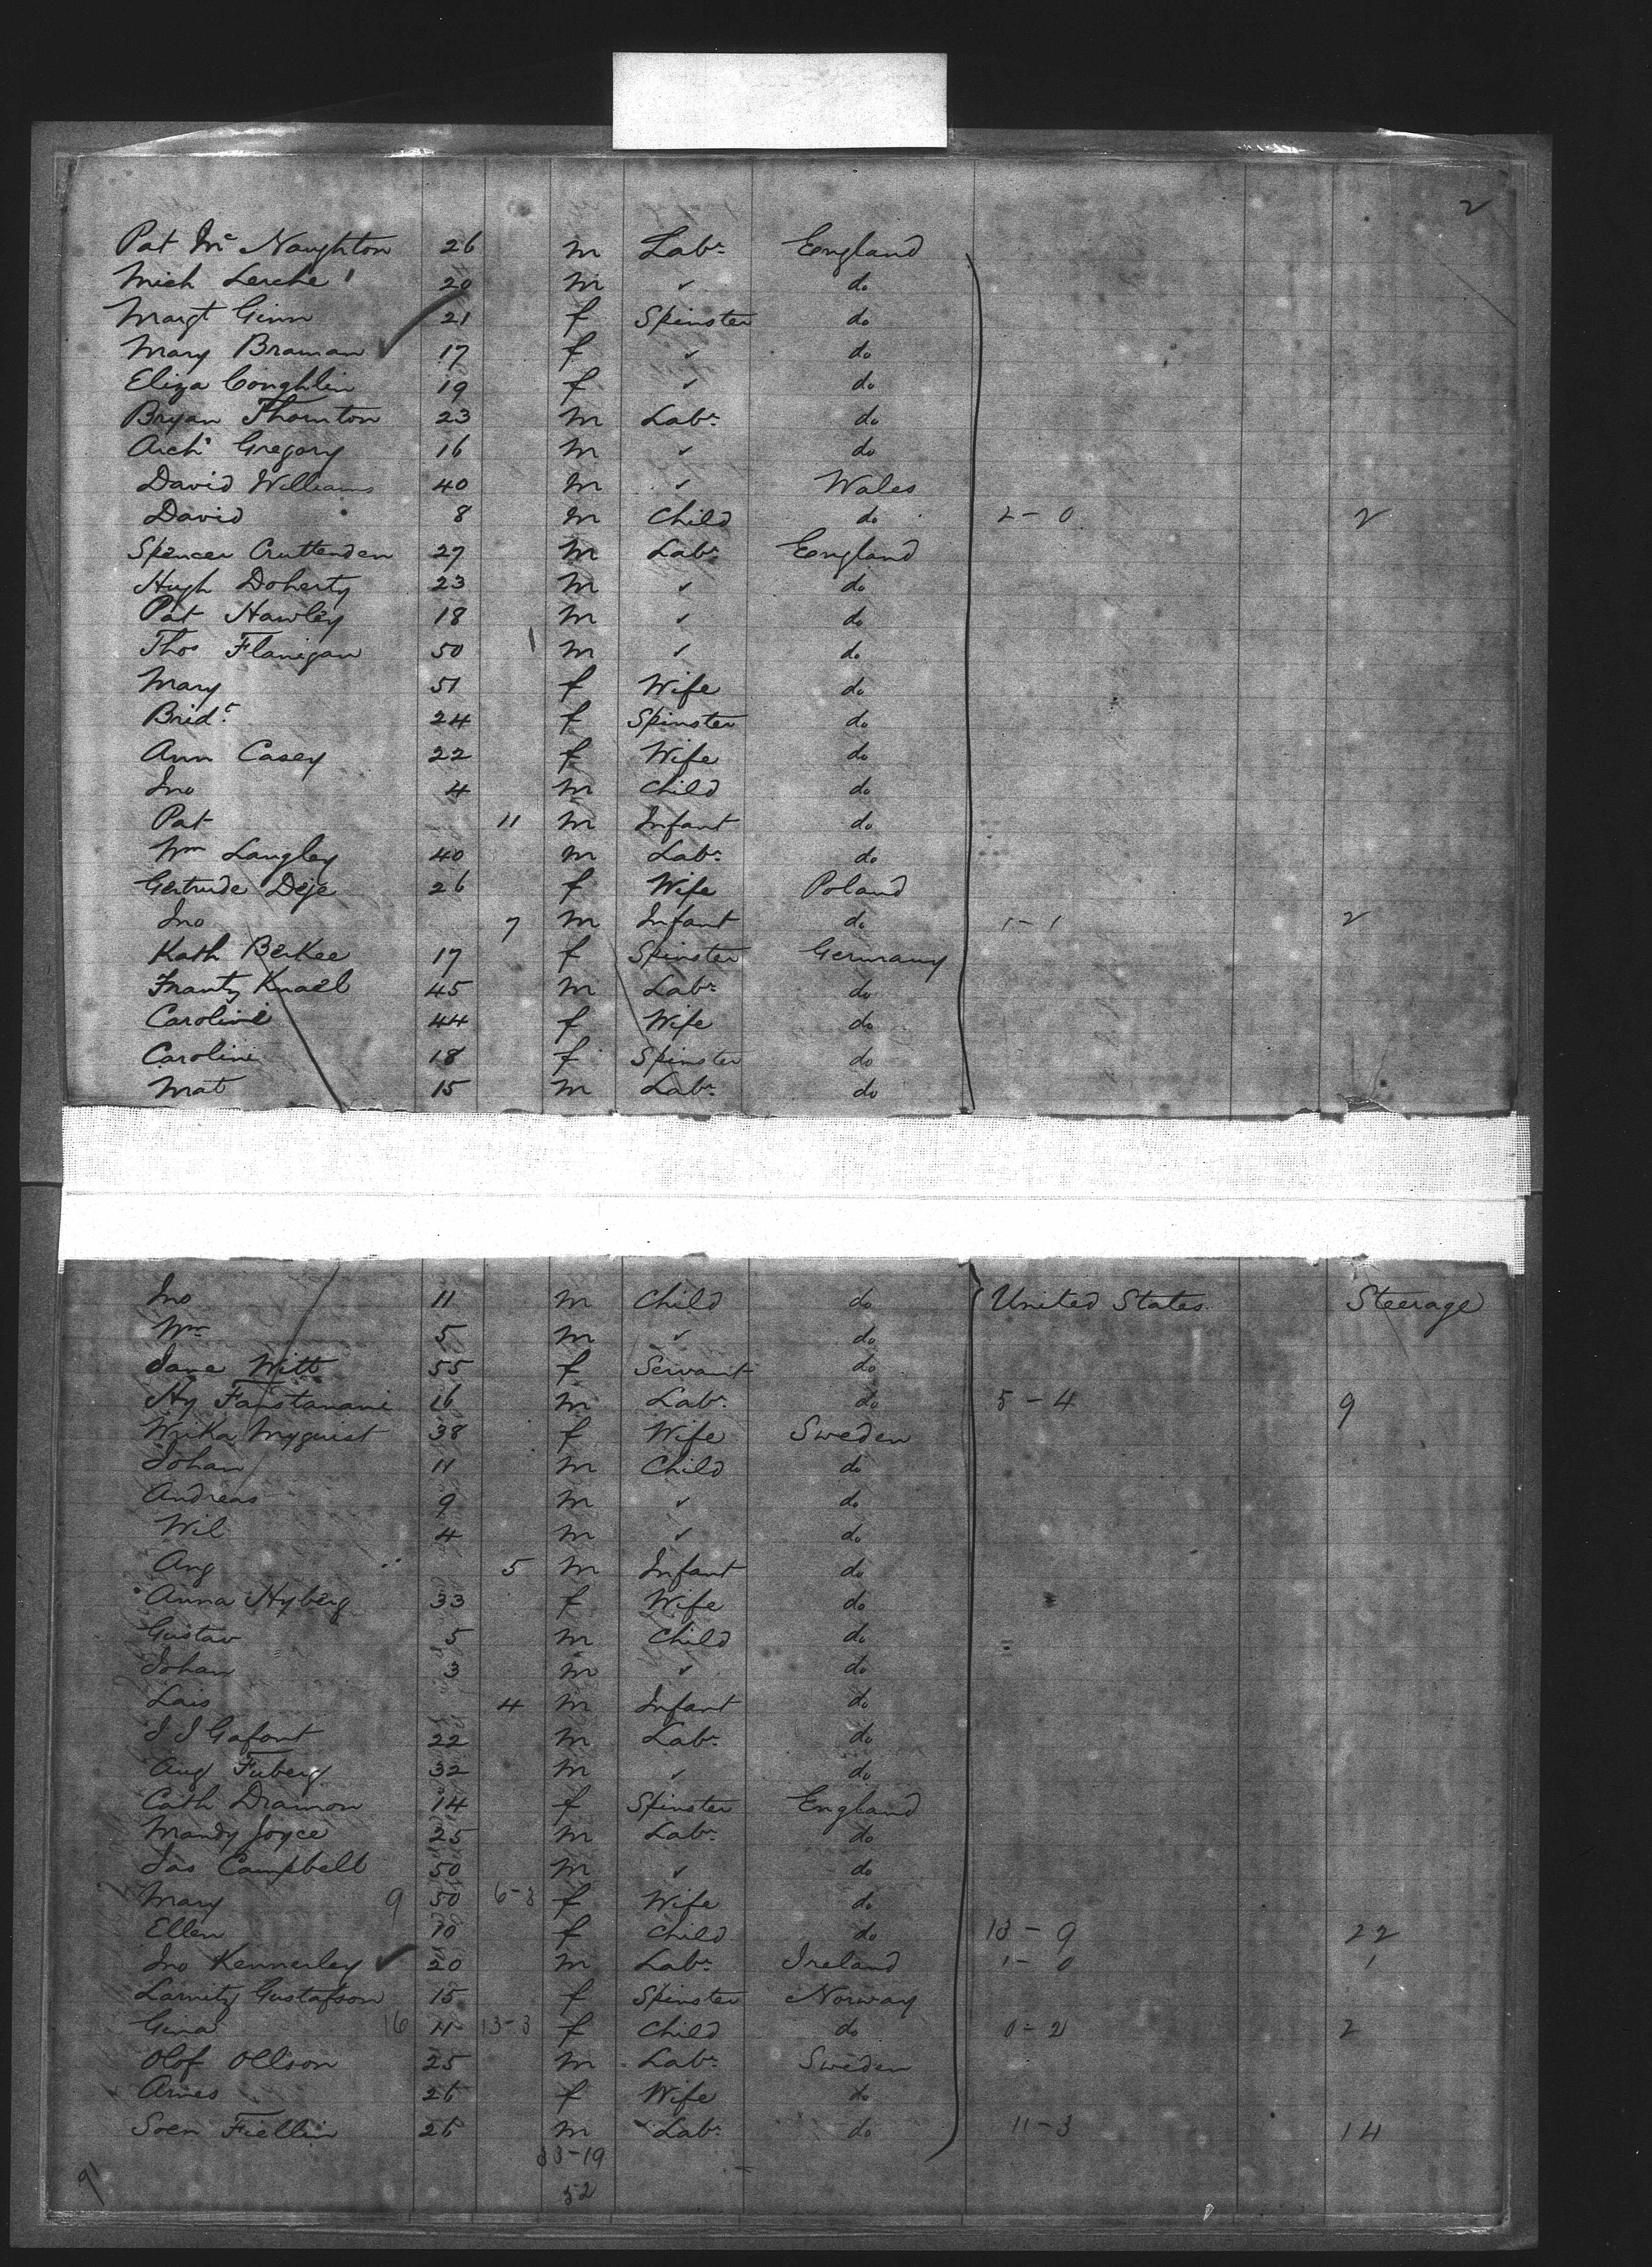 2
Pat Mc Naughton 26 m Labr England
Mich Lerche 20 m " do
Margt Ginn 21 f Spinster do
Mary Braman 17 f " do
Eliza Coughlin 19 f " do
Bryan Thornton 23 m Labr do
Archd Gregory 16 m " do
David Williams 40 m " Wales
David 8 m Child do 2-0 2
Spencer Cruttenden 27 m Labr England
Hugh Doherty 23 m " do
Pat Hawley 18 m " do
Thos Flanigan 50 m " do
Mary 51 f Wife do
Bridt 24 f Spinster do
Ann Casey 22 f Wife do
Jno 4 m Child do
Pat 11 m Infant do
Wm Langley 40 m Labr do
Gertrude Deje 26 f Wife Poland
Jno 7 m Infant do 1-1 2
Kath Berkee 17 f Spinster Germany
Frantz Knaeb 45 m Labr do
Caroline 44 f Wife do
Caroline 18 f Spinster do
Mat 15 m Labr do
Jno 11 m Child do United States Steerage
Wm 5 m " do
Jane Witt 55 f Servant do
Hy 16 m Labr do 5-4 9
38 f Wife Sweden
Johan 11 m Child do
Andreas 9 m " do
Wil 4 m " do
Aug 5 m Infant do
Anna Hyberg 33 f Wife do
Gustav 5 m Child do
Johan 3 m " do
Lars 4 m Infant do
J J Gafont 22 m Labr do
Aug Fuberg 32 m " do
Cath Dramon 14 f Spinster England
Mandy Joyce 25 m Labr do
Jas Campbell 50 m " do
Mary 9 50 6-3 f Wife do
Ellen 10 f Child do 13-9 22
Jno Kennerley 20 m Labr Ireland 1-0 1
Larnitz Gustafson 15 f Spinster Norway
Gina 16 11 13-3 f Child do 0-2 2
Olof Ollson 25 m Labr Sweden
Arnes 26 f Wife do
Soen Fiellin 26 m Labr do 11-3 14
33-19
52
91